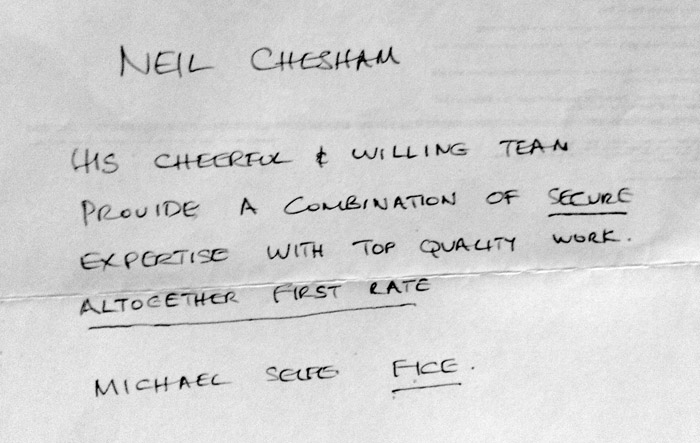 NEIL CHESHAM
HIS CHEERFUL & WILLING TEAM
PROVIDE A COMBINATION OF SECURE
EXPERTISE WITH TOP QUALITY WORK.
ALTOGETHER FIRST RATE
MICHAEL SELFE FICE.